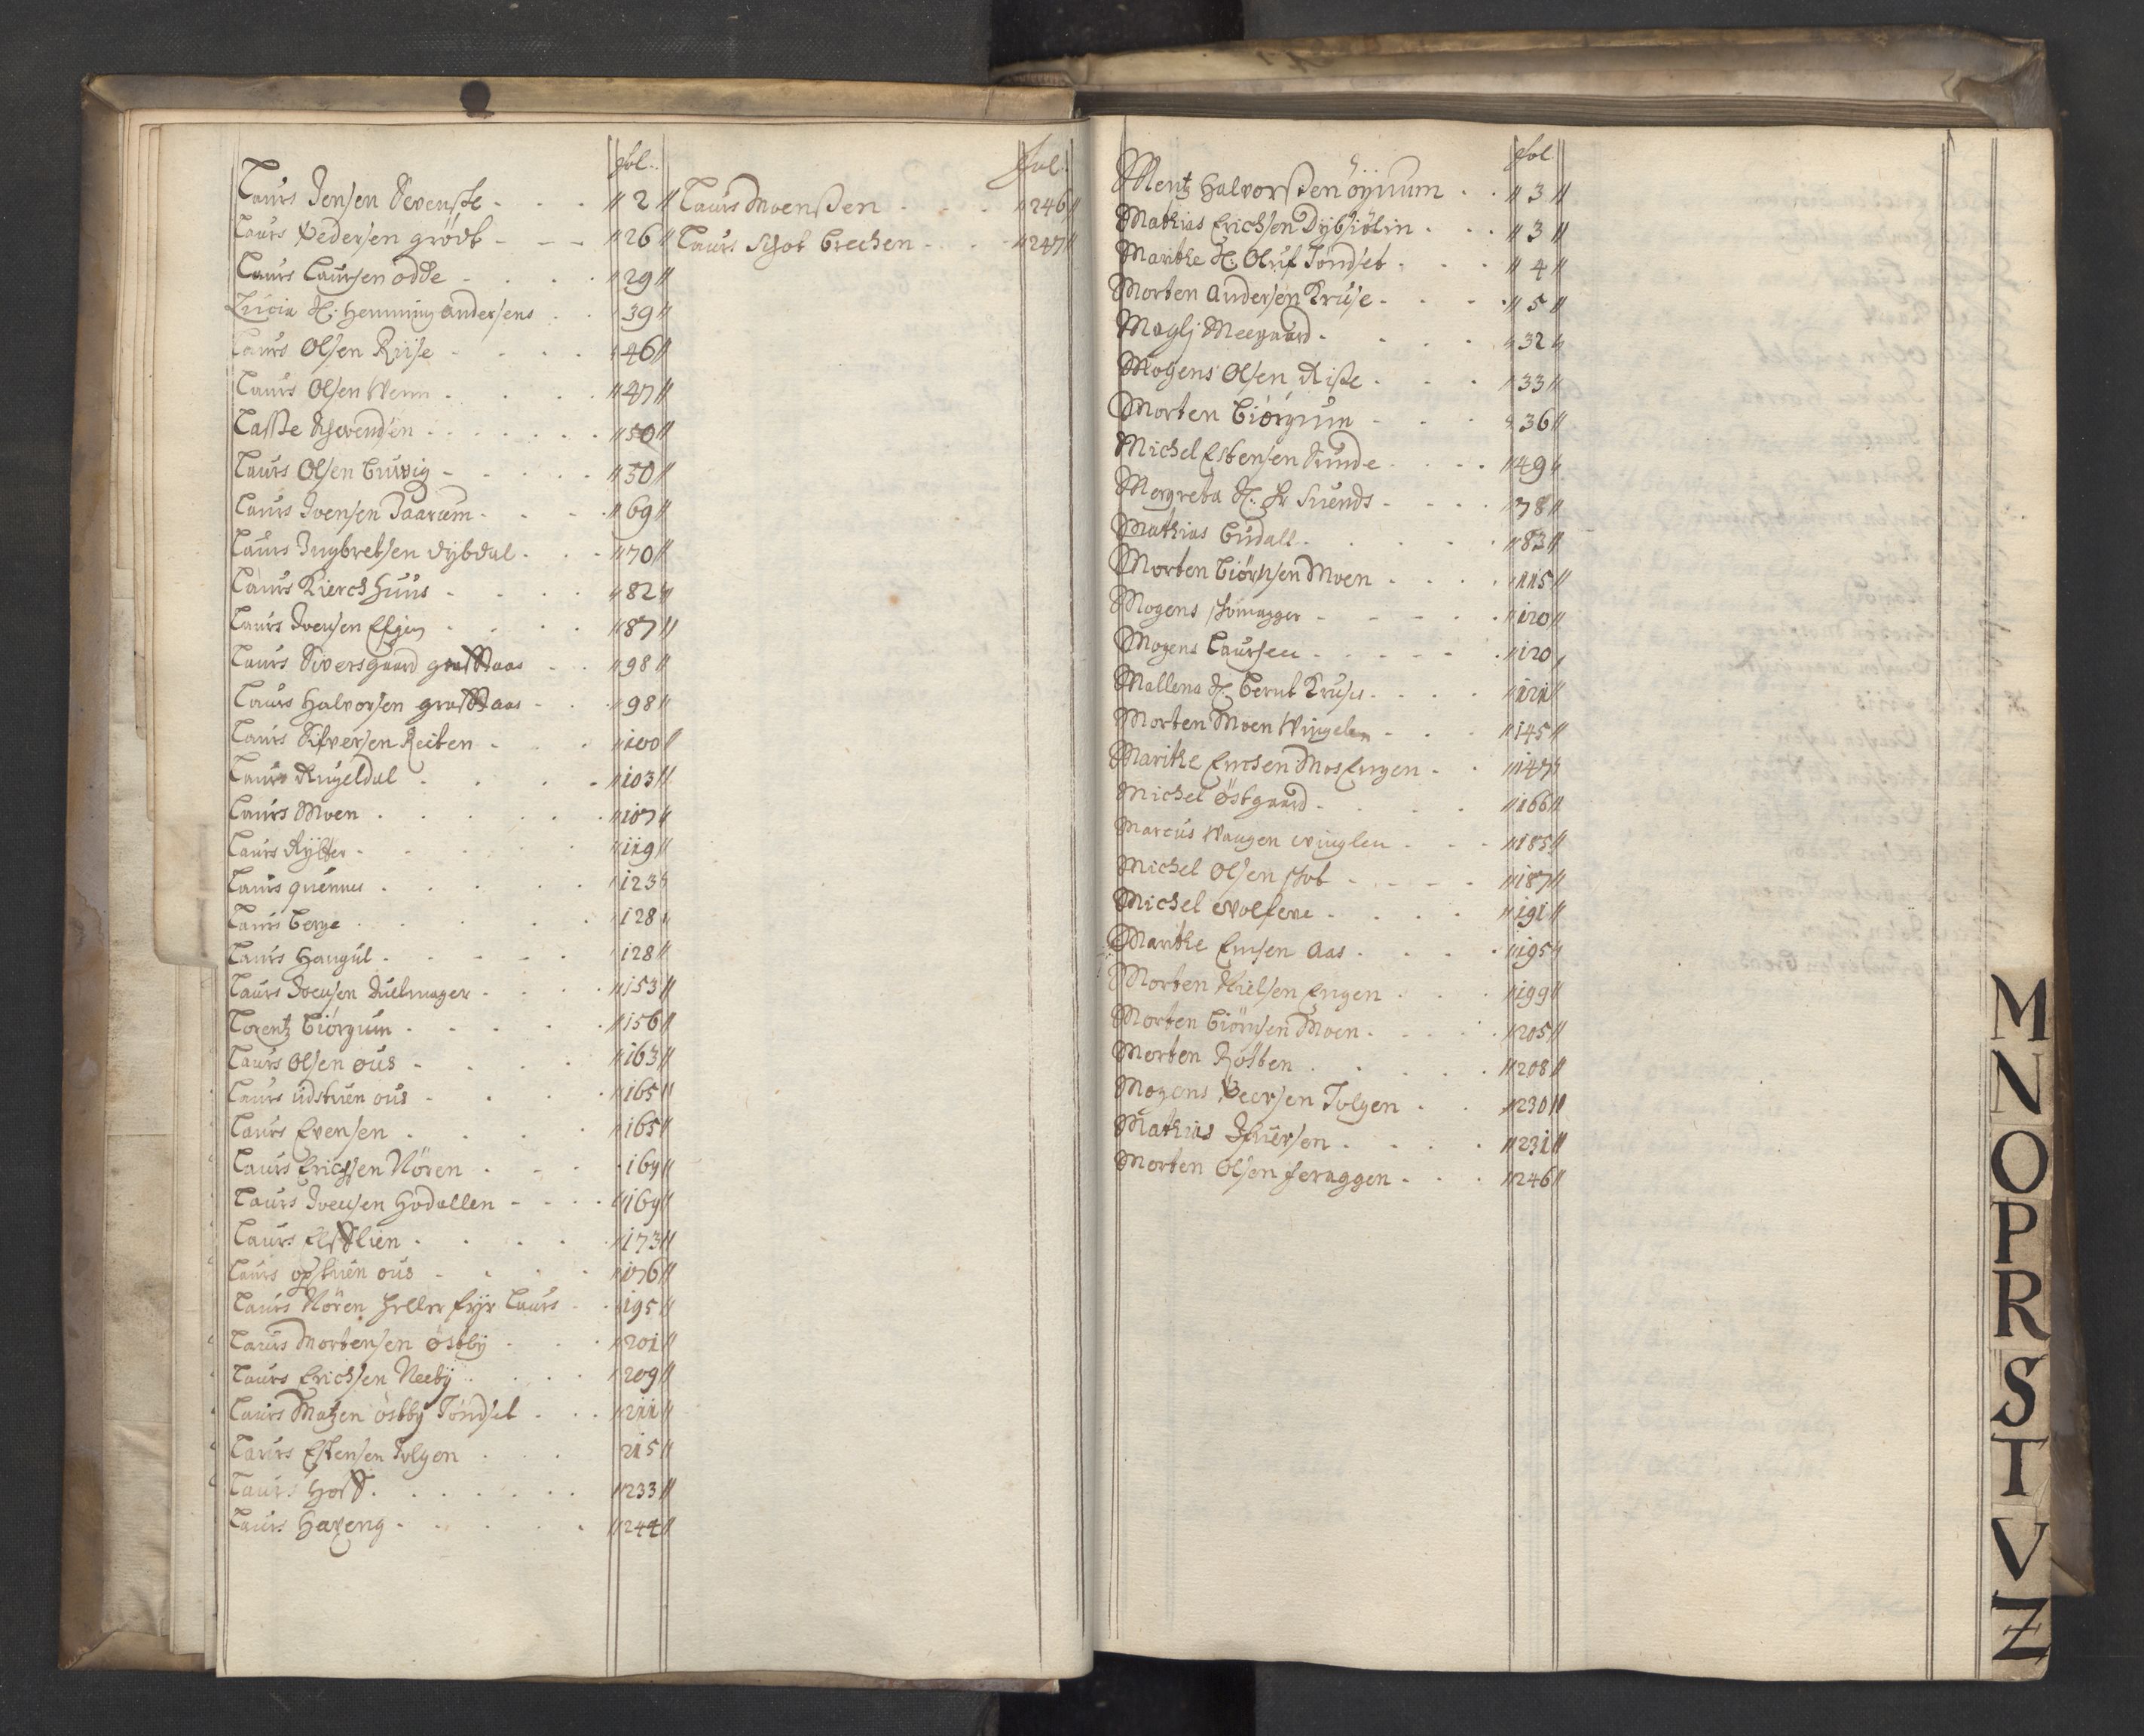 fol.
Laurs Jensen Svenske - - - 2
Laurs Pedersen grödt - - - 26
Laurs Laursen odde - - - 29
Lucia H: Henning andersens - - 39
Laurs Olsen Riise - - - - 46
Laurs Olsen Wenn - - - - 47
Lasse - - - - 50
Laurs Olsen - - - - 50
Laurs Ivensen - - - 69
Laurs Ingbretsen dybdal - - - 70
Laurs Kierchhuus - - - - 82
Laurs Ivensen - - - - 87
Laurs Siversgaard - - 98
Laurs Halvorsen - - 98
Laurs Sifversen Reiten - - - 100
Laurs Rugeldal - - - - 103
Laurs Moen - - - - - - 107
Laurs - - - - - 119
Laurs - - - - - 123
Laurs berge - - - - 128
Laurs Haugul - - - - - 128
Laurs Ivensen - - - - 153
Lorentz Biörgum - - - - - 156
Laurs Olsen ous - - - - 163
Laurs udstuen ous - - - - 165
Laurs Evensen - - - - 165
Laurs Erichsen Nören - - - - 169
Laurs Ivensen Hodallen - - - - 169
Laurs - - - - - 173
Laurs opstuen ous - - - - 176
Laurs Nören heller Laurs - - 195
Laurs Mortensen östby - - - 201
Laurs Erichsen Neeby - - - - 209
Laurs Matzen östby Tönset - - - 211
Laurs Estensen Tolgen - - - 215
Laurs Hoff - - - - - - - 233
Laurs - - - - - 244
fol.
Laurs Moenssen - - - 246
Laurs - - 247
fol.
Mentz Halvorssen öynum - - 3
Mathias Erichsen - - - 3
Marithe H: Oluf Töndset - - - 4
Morten Andersen Kruse - - - 5
Magli Meegaard - - - - 32
Mogens Olsen Risse - - - 33
Morten Biörgum - - - 36
Michel Estensen Sunde - - - - 49
Mergreta H: Suends - - - - 78
Mathias Budall - - - - - 83
Morten Biörnsen Moen - - - - 115
Mogens - - - - - 120
Mogens Laursen - - - - - - 120
Mallena H: Bernt Kruses - - - - 121
Morten Moen Wingelen - - - 145
Marithe Ericsen MosEngen - - 147
Michel östgaard - - - - - 166
Marcus Waugen winglen - - - 185
Michel Olsen - - - - 187
Michel - - - - 191
Marithe Aas - - - - 195
Morten Nielsen Engen - - - 199
Morten Biörnsen Moen - - - - 205
Morten Rösten - - - - - 208
Mogens Peersen Tolgen - - 230
Mathias - - - - 231
Morten Olsen feraggen - - - 246
M
N
O
P
R
S
T
V
Z